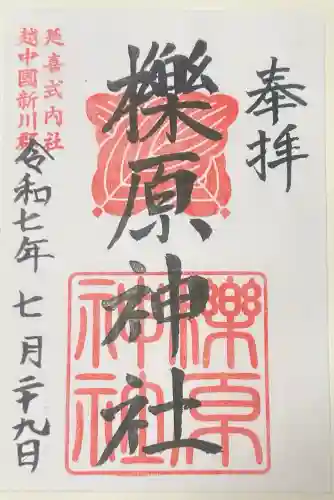 奉拝
櫟原神社
櫟原
神社
延喜式内社
越中國新川郡
令和七年 七月二十九日